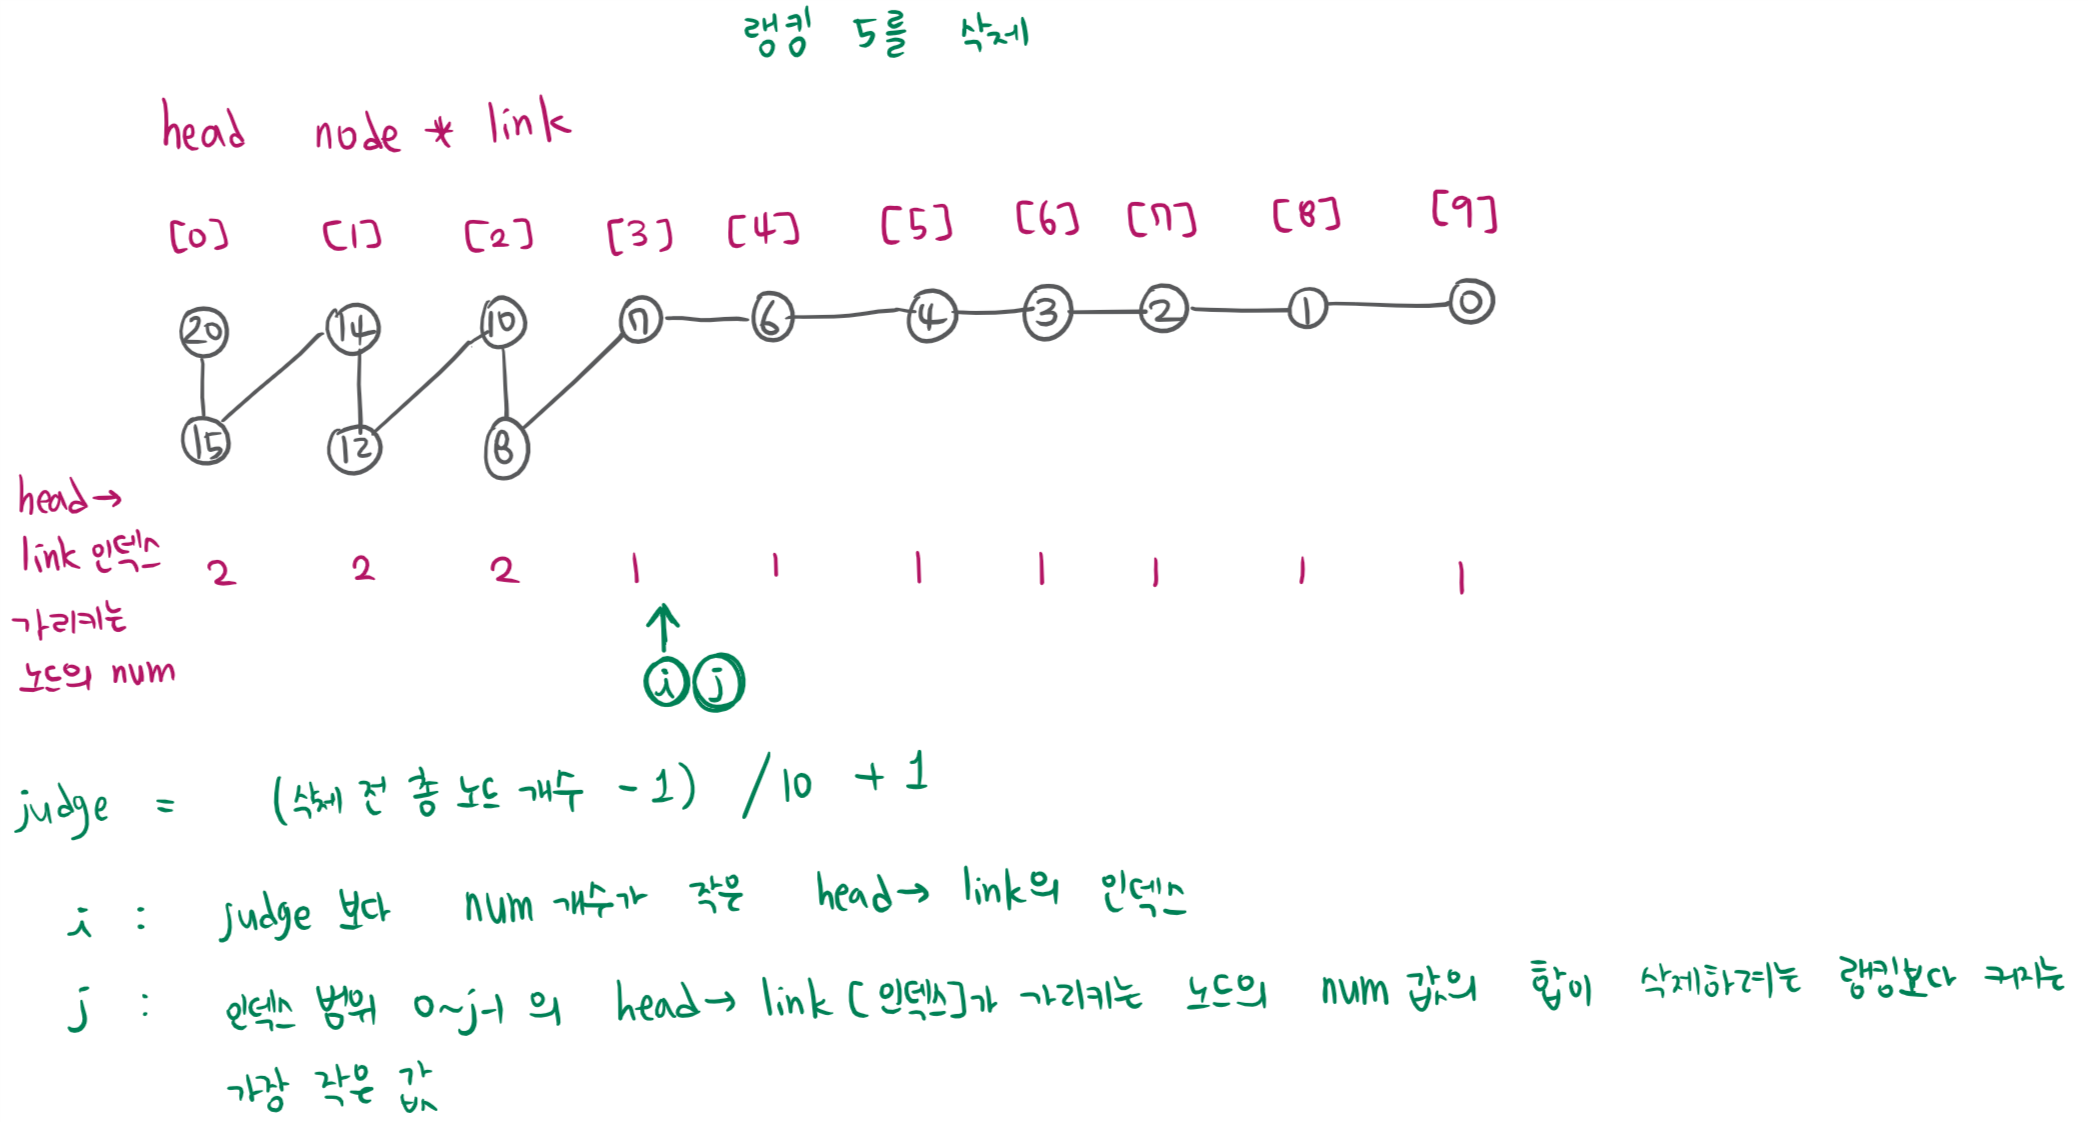 랭킹 5를 삭제
head node * link
[0] [1] [2] [3] [4] [5] [6] [7] [8] [9]
20 14 10 7 6 4 3 2 1 0
15 12 8
head→
link 인덱스
가리키는
노드의 num
2 2 2 1 1 1 1 1 1 1
i j
judge = (삭제 전 총 노드 개수 - 1) / 10 + 1
i : judge 보다 num 개수가 작은 head→ link의 인덱스
j : 인덱스 범위 0~j-1 의 head→ link [인덱스]가 가리키는 노드의 num 값의 합이 삭제하려는 랭킹보다 커지는
가장 작은 값